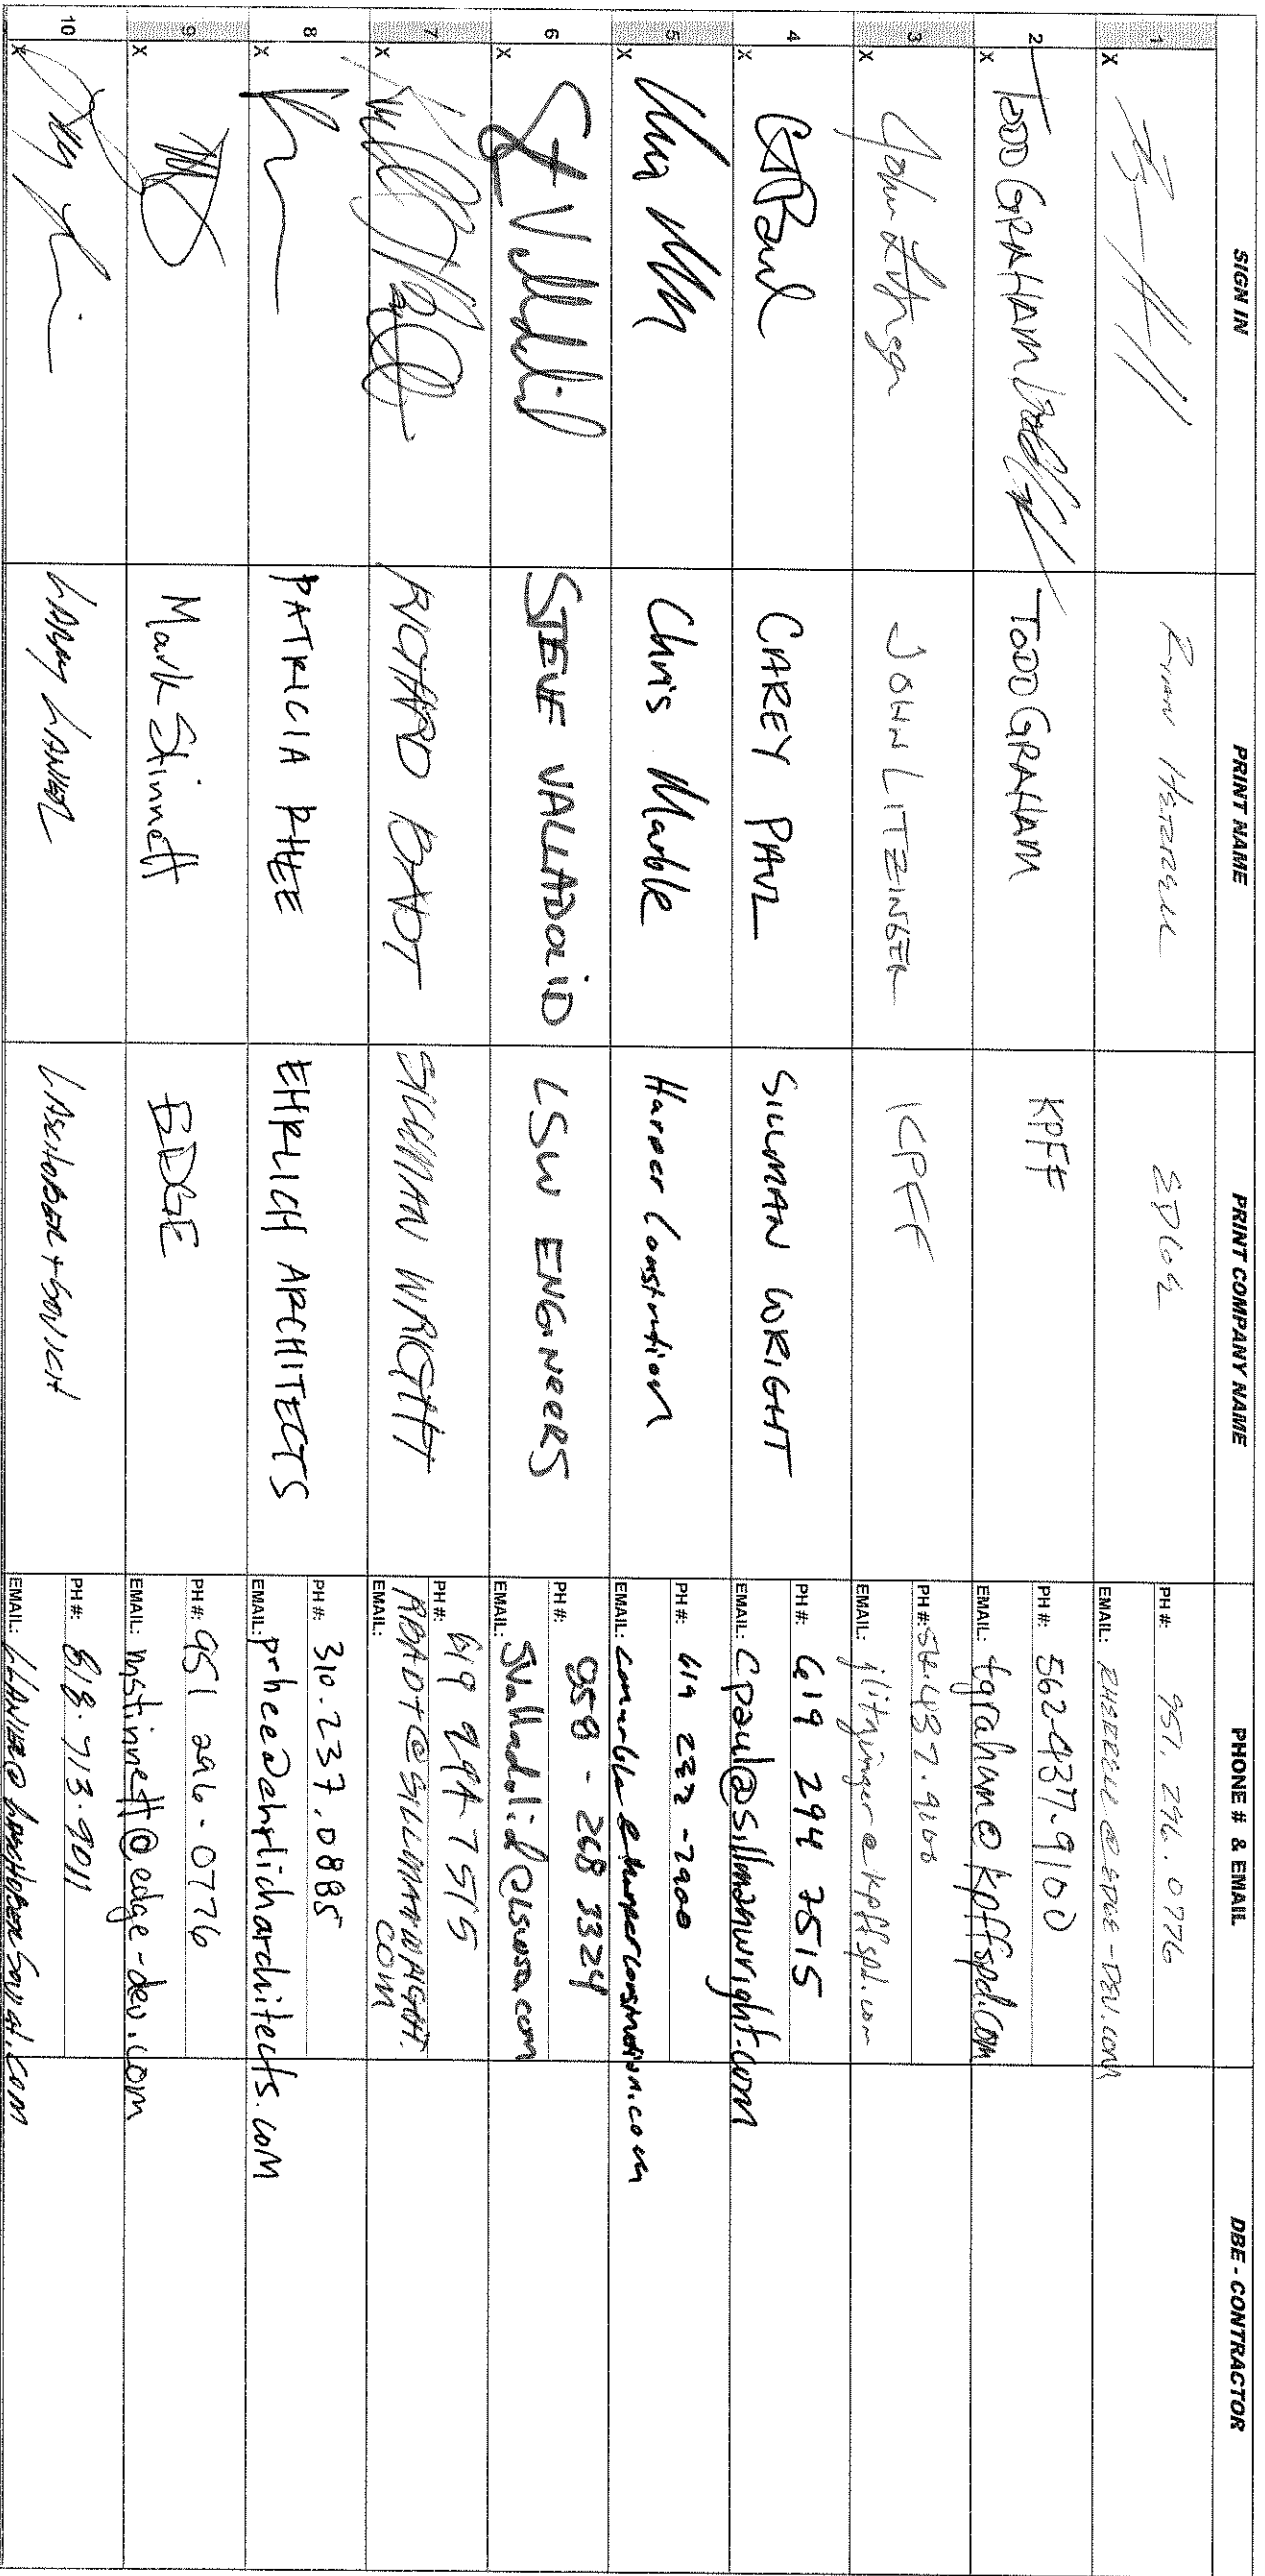 SIGN IN PRINT NAME PRINT COMPANY NAME PHONE # & EMAIL DBE - CONTRACTOR
1 X PH #: 951. 296. 0776
EMAIL:
2 X TODD GRAHAM TODD GRAHAM KPFF PH #: 562-437-9100
EMAIL: tgraham@kpffspd.com
3 X John Litzinger JOHN LITZINGER KPFF PH #: 562.437.9100
EMAIL: jlitzinger@kpffspd.com
4 X CAREY PAUL SILLMAN WRIGHT PH #: 619 294 7515
EMAIL: cpaul@sillmanwright.com
5 X Chris Marble Harper Construction PH #: 619 233-7900
EMAIL: cmarble@harperconstruction.com
6 X STEVE VALLADOLID LSW ENGINEERS PH #: 858 - 268 3324
EMAIL: SValladolid@LSWSD.com
7 X RICHARD SILLMAN WRIGHT PH #: 619 294 7515
EMAIL: SILLMANWRIGHT.
COM
8 X PATRICIA RHEE EHRLICH ARCHITECTS PH #: 310.237.0885
EMAIL: prhee@ehrlicharchitects.com
9 X Mark Stinnett EDGE PH #: 951 296-0776
EMAIL: mstinnett@edge-dev.com
10 X LARRY LANIER LASCHOBER + SOVICH PH #: 818.713.9011
EMAIL: LLANIER@LASCHOBERSOVICH.COM